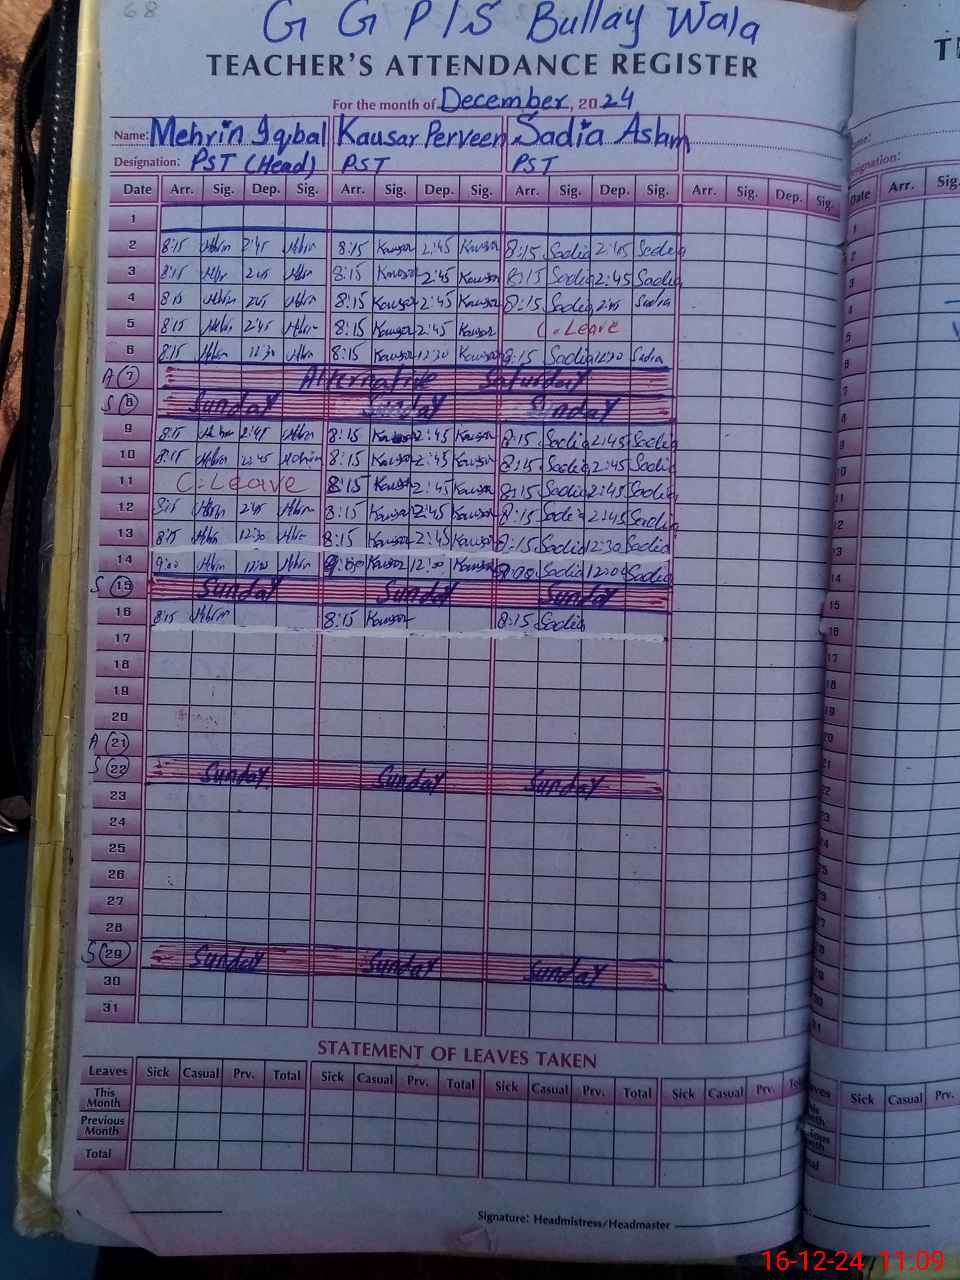 68
G G P/S Bullay Wala
TEACHER'S ATTENDANCE REGISTER
For the month of December, 2024
Name: Mehrin Iqbal Kausar Perveen Sadia Aslam
Designation: PST (Head) PST PST
Date Arr. Sig. Dep. Sig. Arr. Sig. Dep. Sig. Arr. Sig. Dep. Sig. Arr. Sig. Dep. Sig. Date Arr. Sig.
1
2 8:15 2:45 8:15 Kausar 2:45 Kausar 8:15 Sadia 2:45 Sadia
3 8:15 2:45 8:15 Kausar 2:45 Kausar 8:15 Sadia 2:45 Sadia
4 8:15 2:45 8:15 Kausar 2:45 Kausar 8:15 Sadia 2:45 Sadia
5 8:15 2:45 8:15 Kausar 2:45 Kausar C.Leave
6 8:15 12:30 8:15 Kausar 12:30 Kausar 8:15 Sadia 12:30 Sadia
A 7 Alternative Saturday
S 8 Sunday Sunday Sunday
9 8:15 2:45 8:15 Kausar 2:45 Kausar 8:15 Sadia 2:45 Sadia
10 8:15 2:45 8:15 Kausar 2:45 Kausar 8:15 Sadia 2:45 Sadia
11 C.Leave 8:15 Kausar 2:45 Kausar 8:15 Sadia 2:45 Sadia
12 8:15 2:45 8:15 Kausar 2:45 Kausar 8:15 Sadia 2:45 Sadia
13 8:15 12:30 8:15 Kausar 2:45 Kausar 8:15 Sadia 12:30 Sadia
14 9:00 12:00 9:00 Kausar 12:00 Kausar 9:00 Sadia 12:00 Sadia
S 15 Sunday Sunday Sunday
16 8:15 8:15 Kausar 8:15 Sadia
17
18
19
20
A 21
S 22 Sunday Sunday Sunday
23
24
25
26
27
28
S 29 Sunday Sunday Sunday
30
31
STATEMENT OF LEAVES TAKEN
Leaves Sick Casual Prv. Total Sick Casual Prv. Total Sick Casual Prv. Total Sick Casual Prv. Sick Casual Prv.
This Month
Previous Month
Total
Signature: Headmistress/Headmaster
16-12-24 11:09